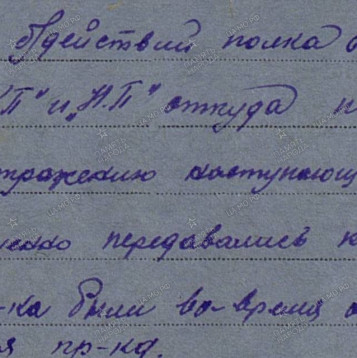 действий полка
П" и „Н.П" откуда
тражению наступающ
енно передавались
-ка были во-время
я пр-ка.